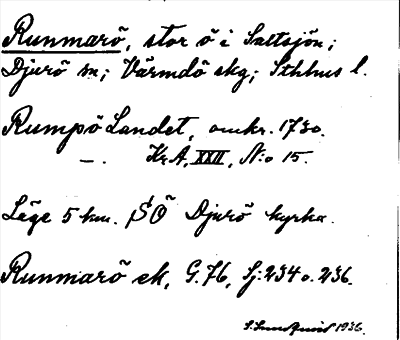 Runmarö, stor ö i Saltsjön;
Djurö sn; Värmdö skg; Sthlms l.
Rumpö Landet, omkr. 1730.
—. Kr.A, XXII, N:o 15.
Läge 5 km. SÖ Djurö kyrka.
Runmarö ek, G.76, Sj:234 o. 236.
S. Lundqvist 1936.